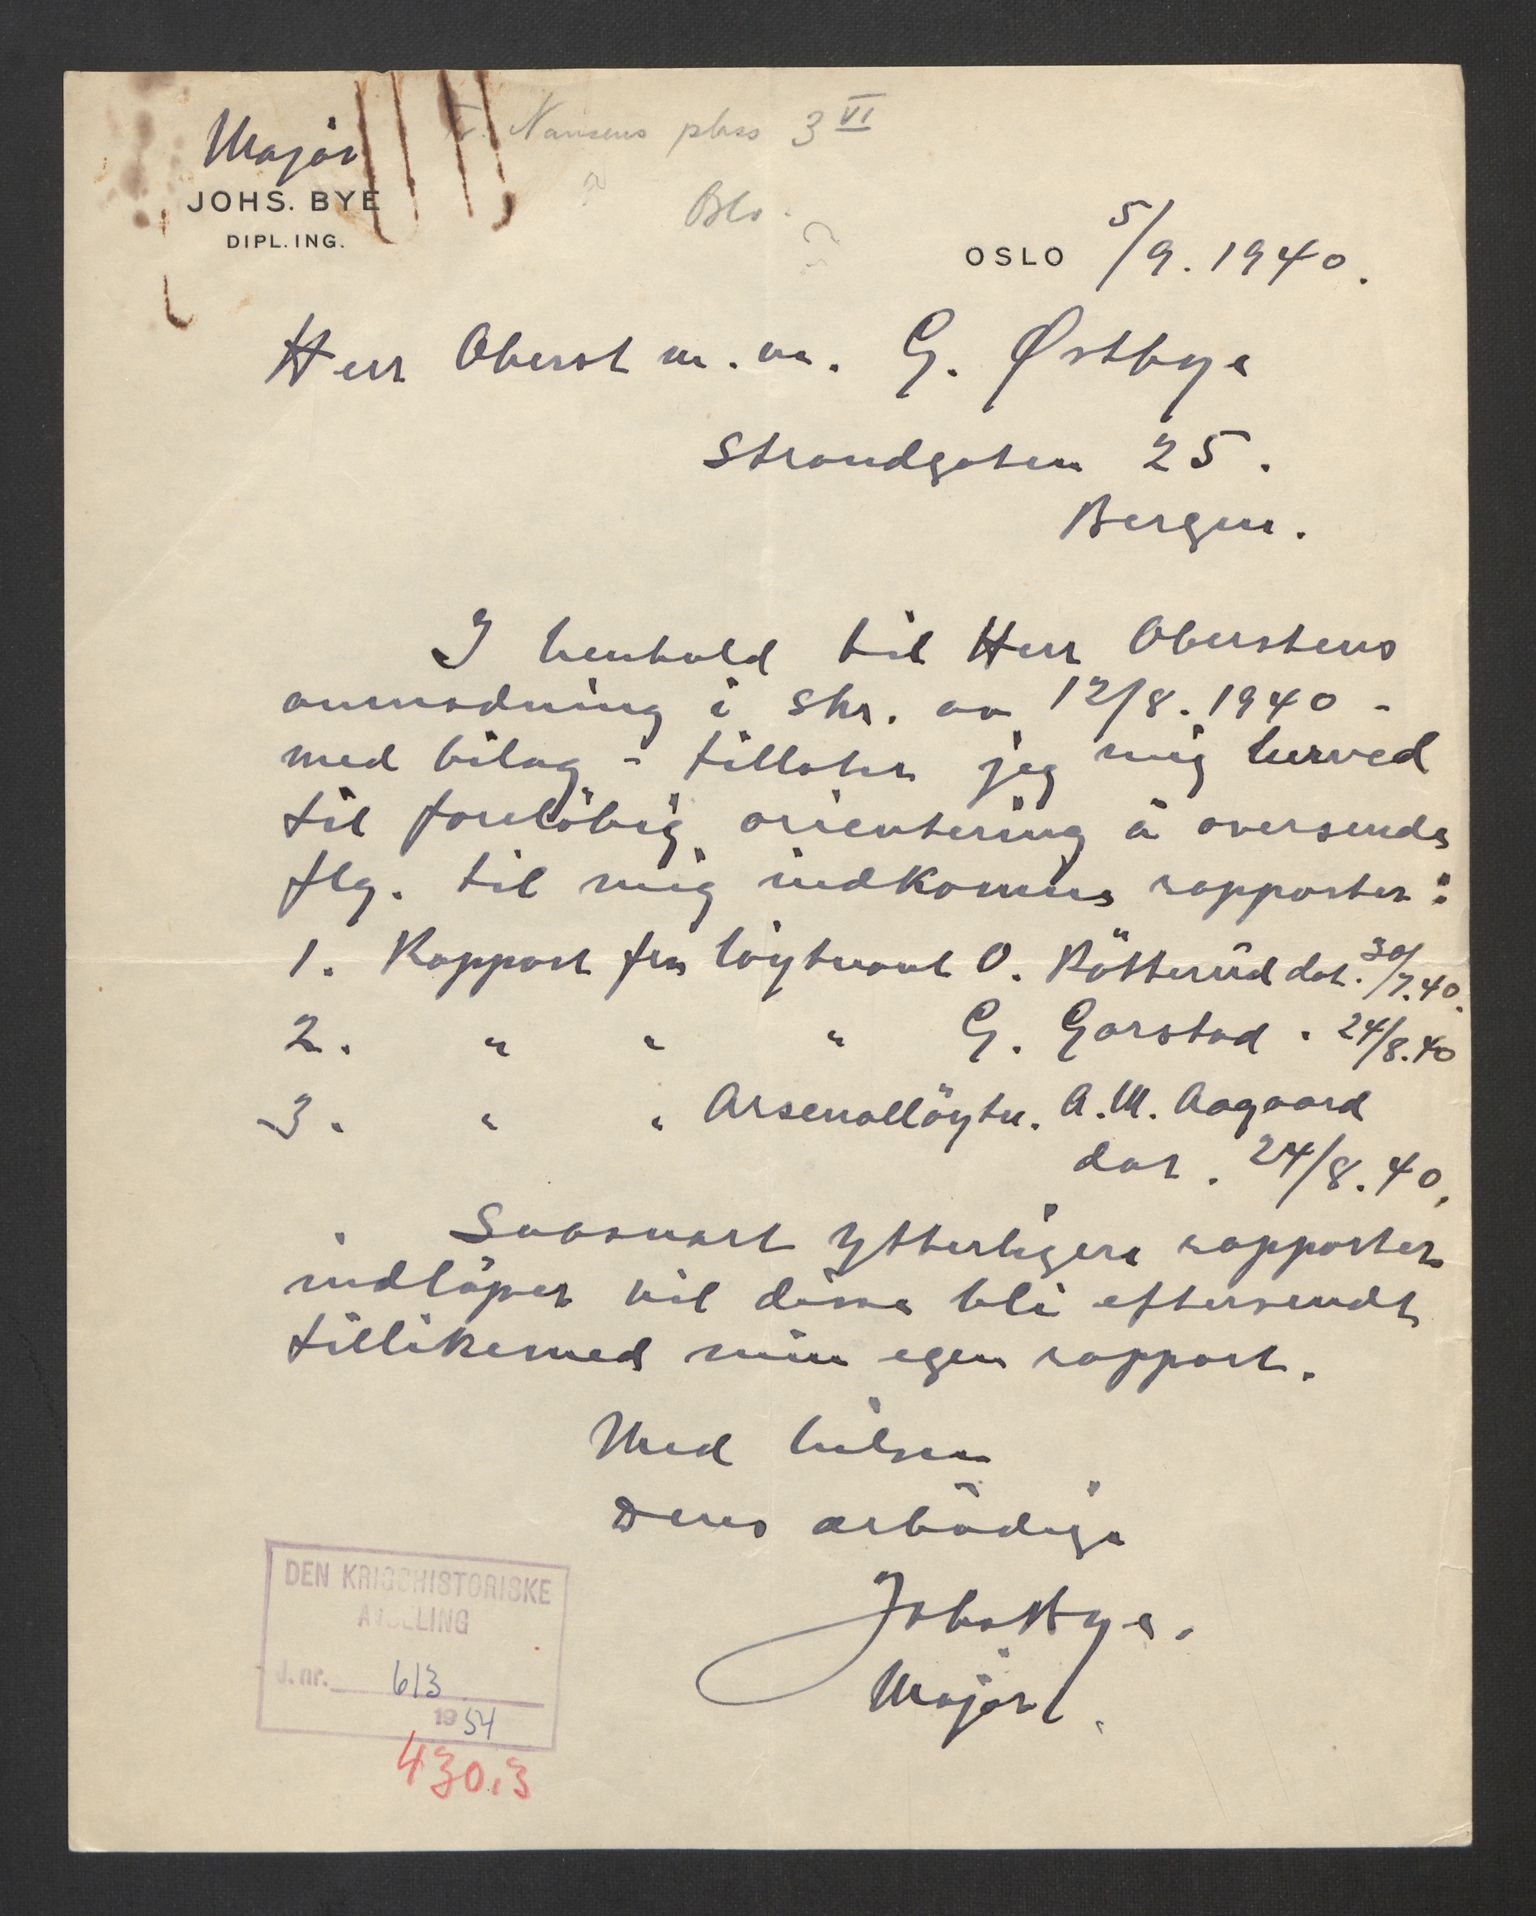 Fr. Nansens plass 3 VI
Major
JOHS. BYE
DIPL. ING.
OSLO 5/9. 1940.
Herr Oberst m. m. G. Østbye
Strandgaten 25.
Bergen.
I henhold til Herr Oberstens
anmodning i skr. av 12/8. 1940 -
med bilag - tillater jeg mig herved
til foreløbig orientering å oversende
flg. til mig indkomne rapporter:
1. Rapport fra løytnant O. Rötterud dat. 30/7.40.
2. " " " G. Garstad " 24/8.40
3. " " Arsenalløytn. A. M. Aagaard
dat. 24/8.40.
Saasnart ytterligere rapporter
indløper vil disse bli eftersendt
tillikemed min egen rapport.
Med hilsen
Deres ærbødige
Johs Bye.
Major.
DEN KRIGSHISTORISKE
AVDELING
J. nr. 613
1954
430.3